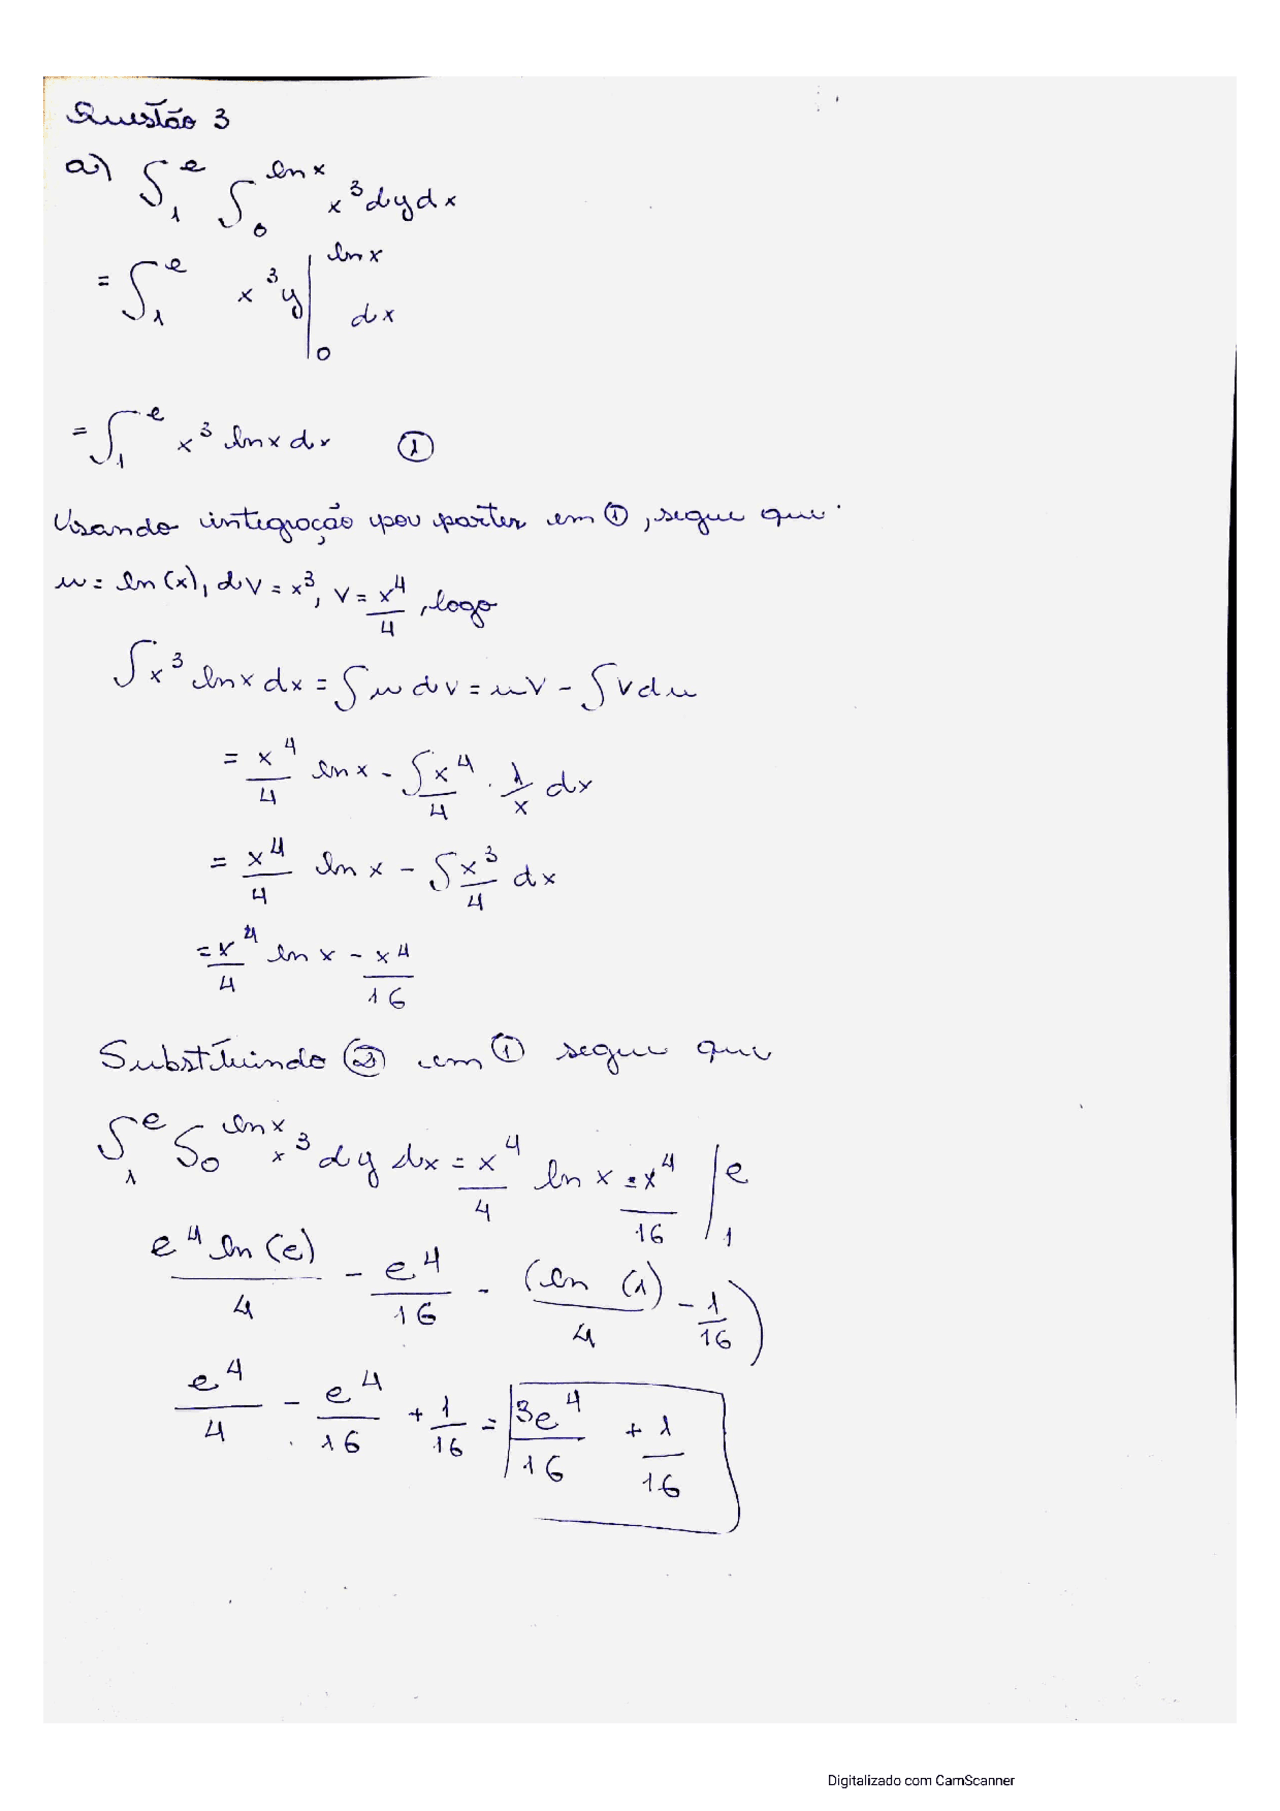 Questão 3
a) ∫₁^e ∫₀^{ln x} x³ dy dx
= ∫₁^e x³y |₀^{ln x} dx
= ∫₁^e x³ ln x dx ①
Usando integração por partes em ①, segue que
u = ln(x), dv = x³, v = x⁴/4, logo
∫x³ ln x dx = ∫u dv = uv - ∫v du
= x⁴/4 ln x - ∫x⁴/4 · 1/x dx
= x⁴/4 ln x - ∫x³/4 dx
= x⁴/4 ln x - x⁴/16
Substituindo ② em ① segue que
∫₁^e ∫₀^{ln x} x³ dy dx = x⁴/4 ln x - x⁴/16 |₁^e
e⁴ ln(e)/4 - e⁴/16 - (ln(1)/4 - 1/16)
e⁴/4 - e⁴/16 + 1/16 = 3e⁴/16 + 1/16
Digitalizado com CamScanner